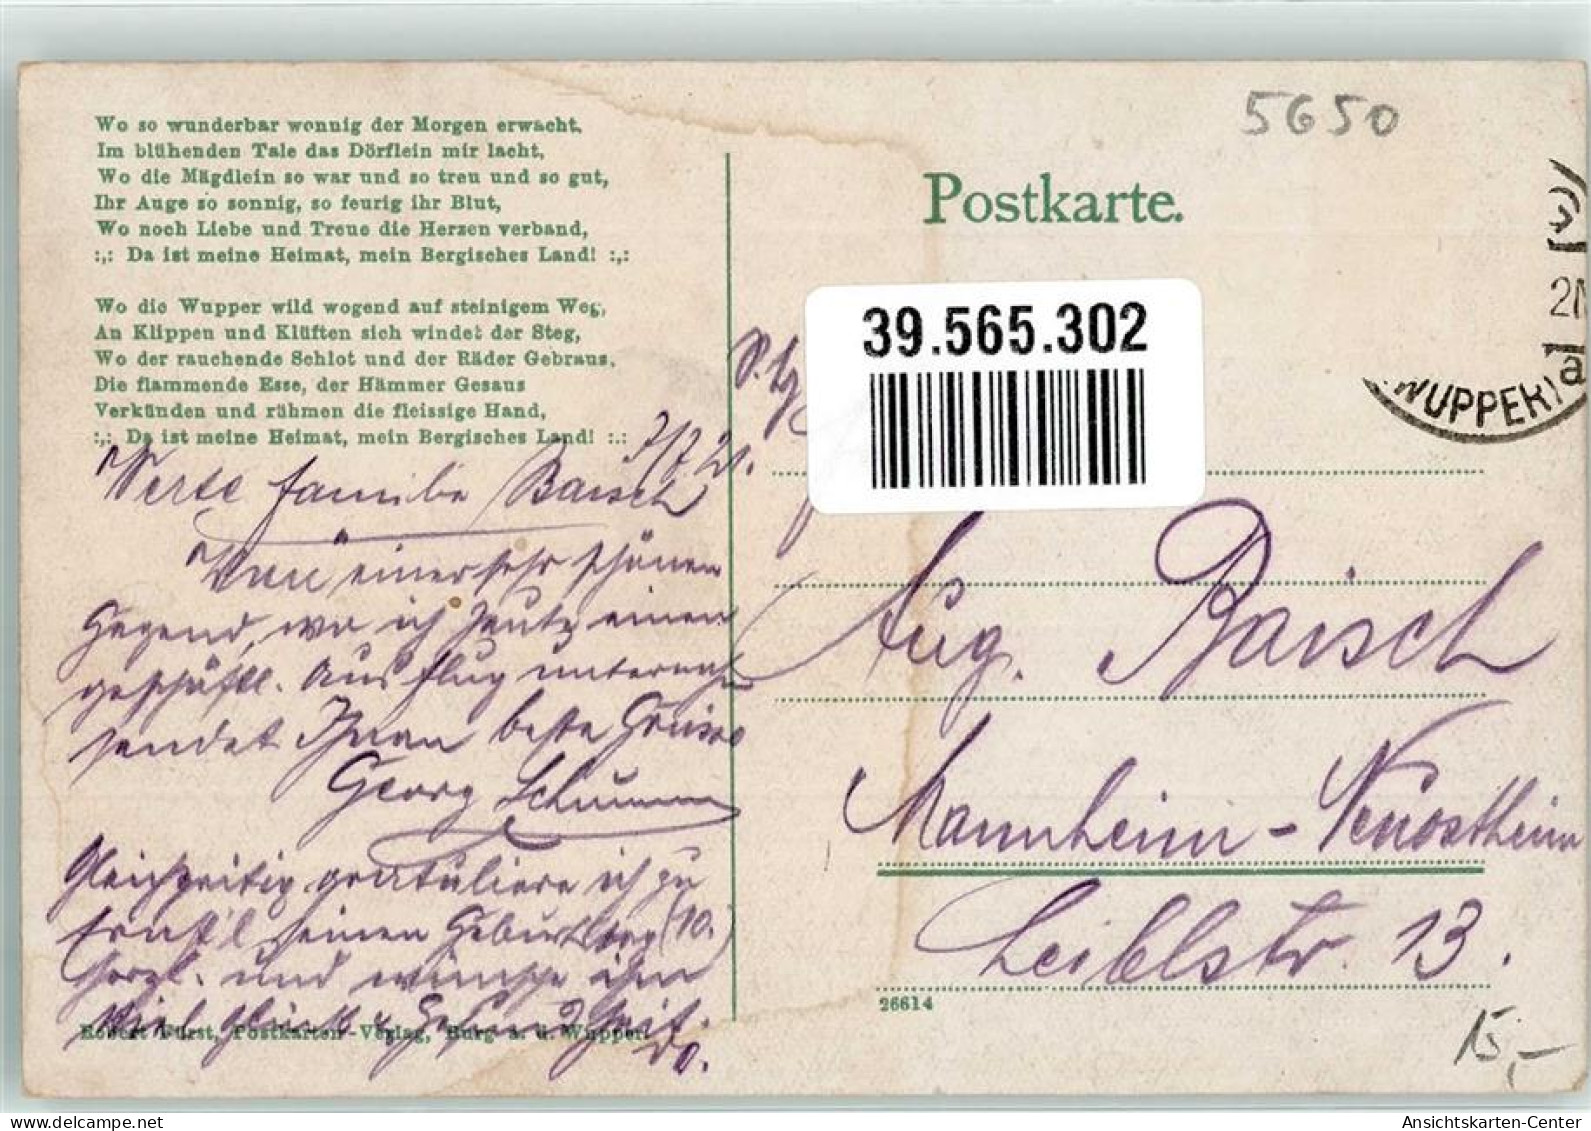 Wo so wunderbar wonnig der Morgen erwacht.
Im blühenden Tale das Dörflein mir lacht,
Wo die Mägdlein so war und so treu und so gut,
Ihr Auge so sonnig, so feurig ihr Blut,
Wo noch Liebe und Treue die Herzen verband,
:,: Da ist meine Heimat, mein Bergisches Land! :,:
Wo die Wupper wild wogend auf steinigem Weg,
An Klippen und Klüften sich windet der Steg,
Wo der rauchende Schlot und der Räder Gebraus,
Die flammende Esse, der Hämmer Gesaus
Verkünden und rühmen die fleissige Hand,
:,: Da ist meine Heimat, mein Bergisches Land! :,:
7/7 21.
Werte Familie Baisch
Von einer sehr schönen
Gegend, wo ich heute einen
geschäftl. Ausflug unternahm
sendet Ihnen beste Grüsse
Georg Schumm
Gleichzeitig gratuliere ich zu
seinen Geburtstag (10.)
herzl. und wünsche ihm
viel Glück u. Gesundheit.
Do.
Robert Fürst, Postkarten-Verlag, Burg a. d. Wupper.
5650
Postkarte.
WUPPER)
39.565.302
Aug. Baisch
Mannheim-Neuostheim
Leiblstr. 13.
26614
15,-
www.ansichtskarten-center.de
Ansichtskarten-Center